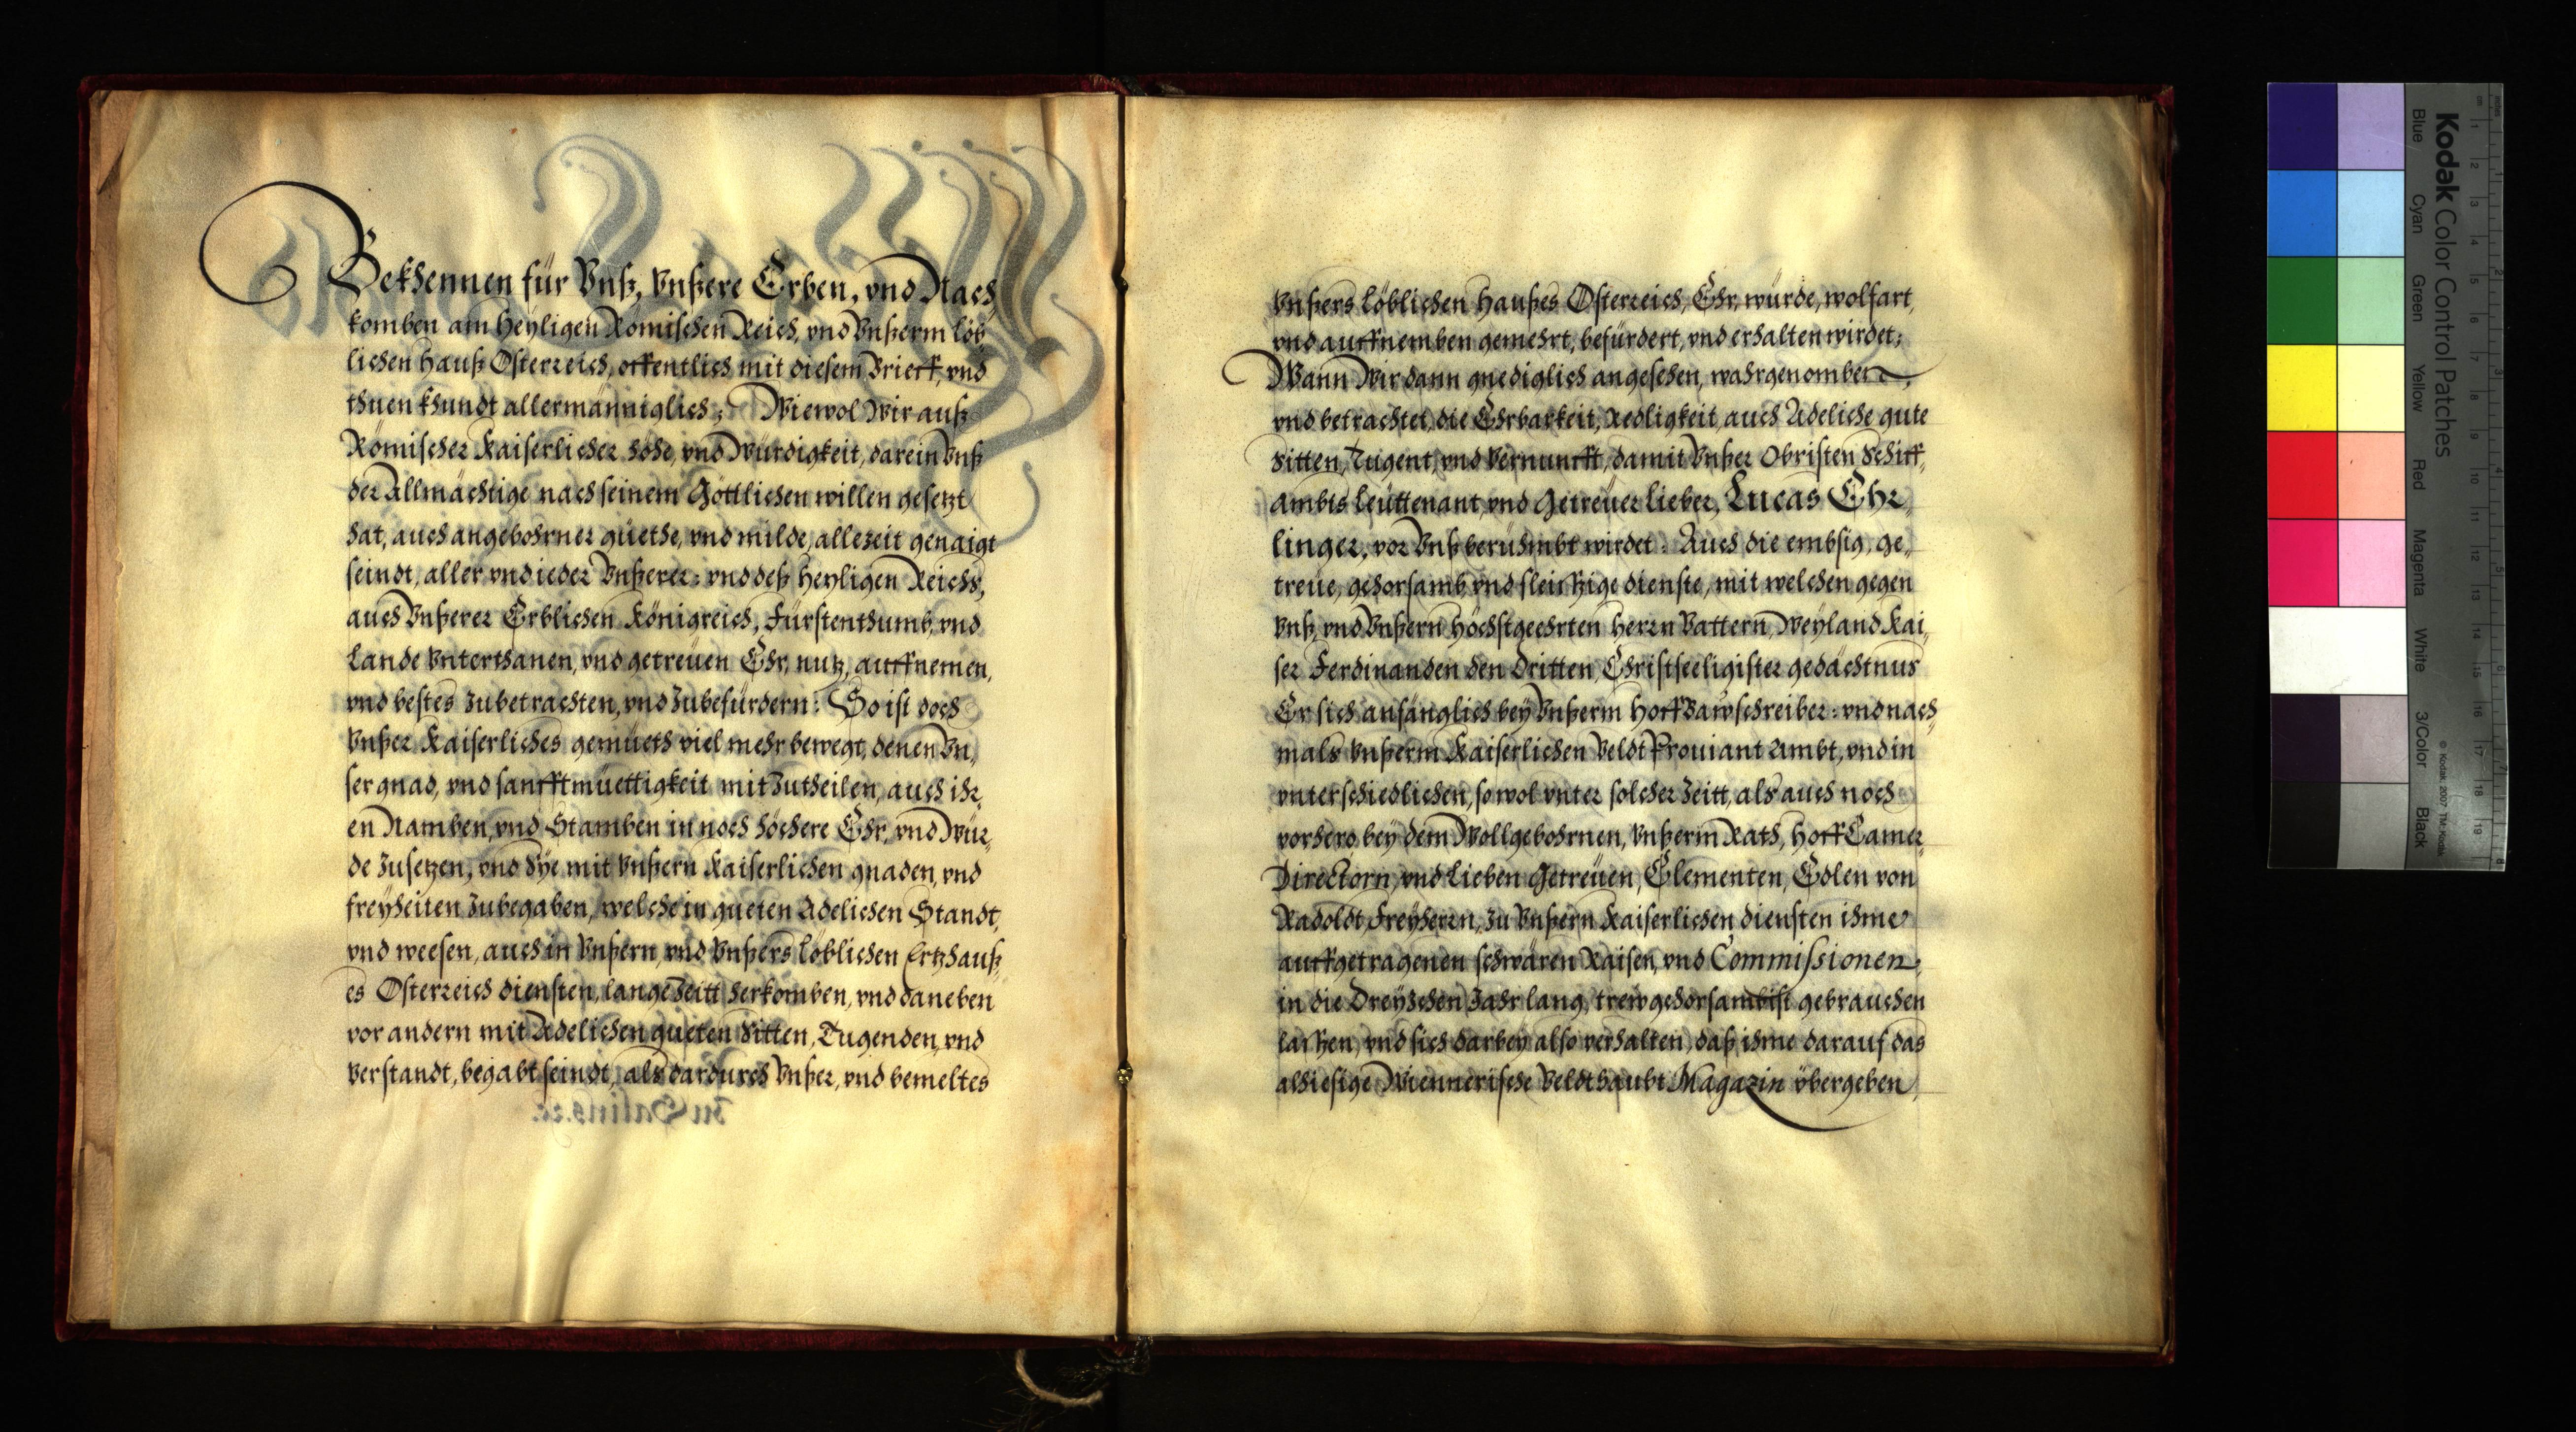 Bekhennen für Vnß, Vnßere Erben, vnd Nach„
komben am Heyligen Römischen Reich, vnd Vnßerm löb„
lichen Hauß Össterreich, offentlich mit diesem Brieff, vnd
thuen khundt allermänniglich; Wiewol Wir auß
Römischer Kaiserlicher höhe, vnd Würdigkeit, darein Vnß
der Allmächtige nach seinem Göttlichen willen gesetzt
hat, auch angebohrner güethe, vnd milde, allezeit genaigt
seindt, aller vnd ieder Vnßerer: vnd deß Heyligen Reichs,
auch Vnßerer Erblichen Königreich, Fürstenthumb, vnd
Lande Vnterthanen, vnd getreuen Ehr, nutz, auffnemen,
vnd bestes zubetrachten, vnd zubefürdern: So ist doch
Vnßer Kaiserliches gemüeth viel mehr bewegt, denen Vn„
ser gnad, vnd sanfftmüettigkeit mitzutheilen, auch ihr„
en Namben, vnd Stamben in noch höchere Ehr, vnd Wür„
de zusetzen, vnd Sye mit Vnßern Kaiserlichen gnaden, vnd
freyheiten zubegaben, welche in gueten Adelichen Standt,
vnd weesen, auch in Vnßern, vnd Vnßers löblichen Ertzhauß„
es Össterreich diensten, lange Zeitt herkomben, vnd daneben
vor andern mit Adelichen gueten Sitten, Tugenden, vnd
Verstandt, begabt seindt, als dardurch Vnßer, vnd bemeltes
Vnßers löblichen Haußes Össterreich, Ehr, würde, wolfart,
vnd auffnemben gemehrt, befürdert, vnd erhalten wirdet;
Wann Wir dann gnediglich angesehen, wahrgenomben,
vnd betrachtet, die Ehrbarkeit, Redligkeit, auch Adeliche gute
Sitten, Tugent, vnd Vernunfft, damit Vnßer Obristen Schiff„
ambts Leüttenant, vnd Getreüer lieber, Lucas Ehr„
linger, vor Vnß berühmbt wirdet: Auch die embsig, ge„
treüe, gehorsamb, vnd fleissige dienste, mit welchen gegen
Vnß, vnd Vnßern Höchstgeehrten Herrn Vattern, Weyland Kai„
ser Ferdinanden den Dritten, Christseeligister gedächtnus
Er sich anfänglich bey Vnßerm HoffBawschreiber: vnd nach„
mals Vnßerm Kaiserlichen Veldt Prouiant Ambt, vnd in
vnterschiedlichen, so wol vnter solcher Zeitt, als auch noch
vorhero, bey dem Wollgebohrnen, Vnßerm Rath, HoffCamer„
Directorn, vnd Lieben Getreüen, Clementen, Edlen von
Radoldt, Freyherrn, zu Vnßern Kaiserlichen diensten ihme
auffgetragenen schwären Raisen, vnd Commissionen,
in die Dreyzehen Jahr lang, trew gehorsambist gebrauchen
lassen, vnd sich darbey also verhalten, daß ihme darauf das
alhiesige Wiennerische Veldthaubt Magazin übergeben,
Zu Salins. ꝛc.
Kodak Color Control Patches
Blue Cyan Green Yellow Red Magenta White 3/Color Black
© Kodak, 2007 TM: Kodak